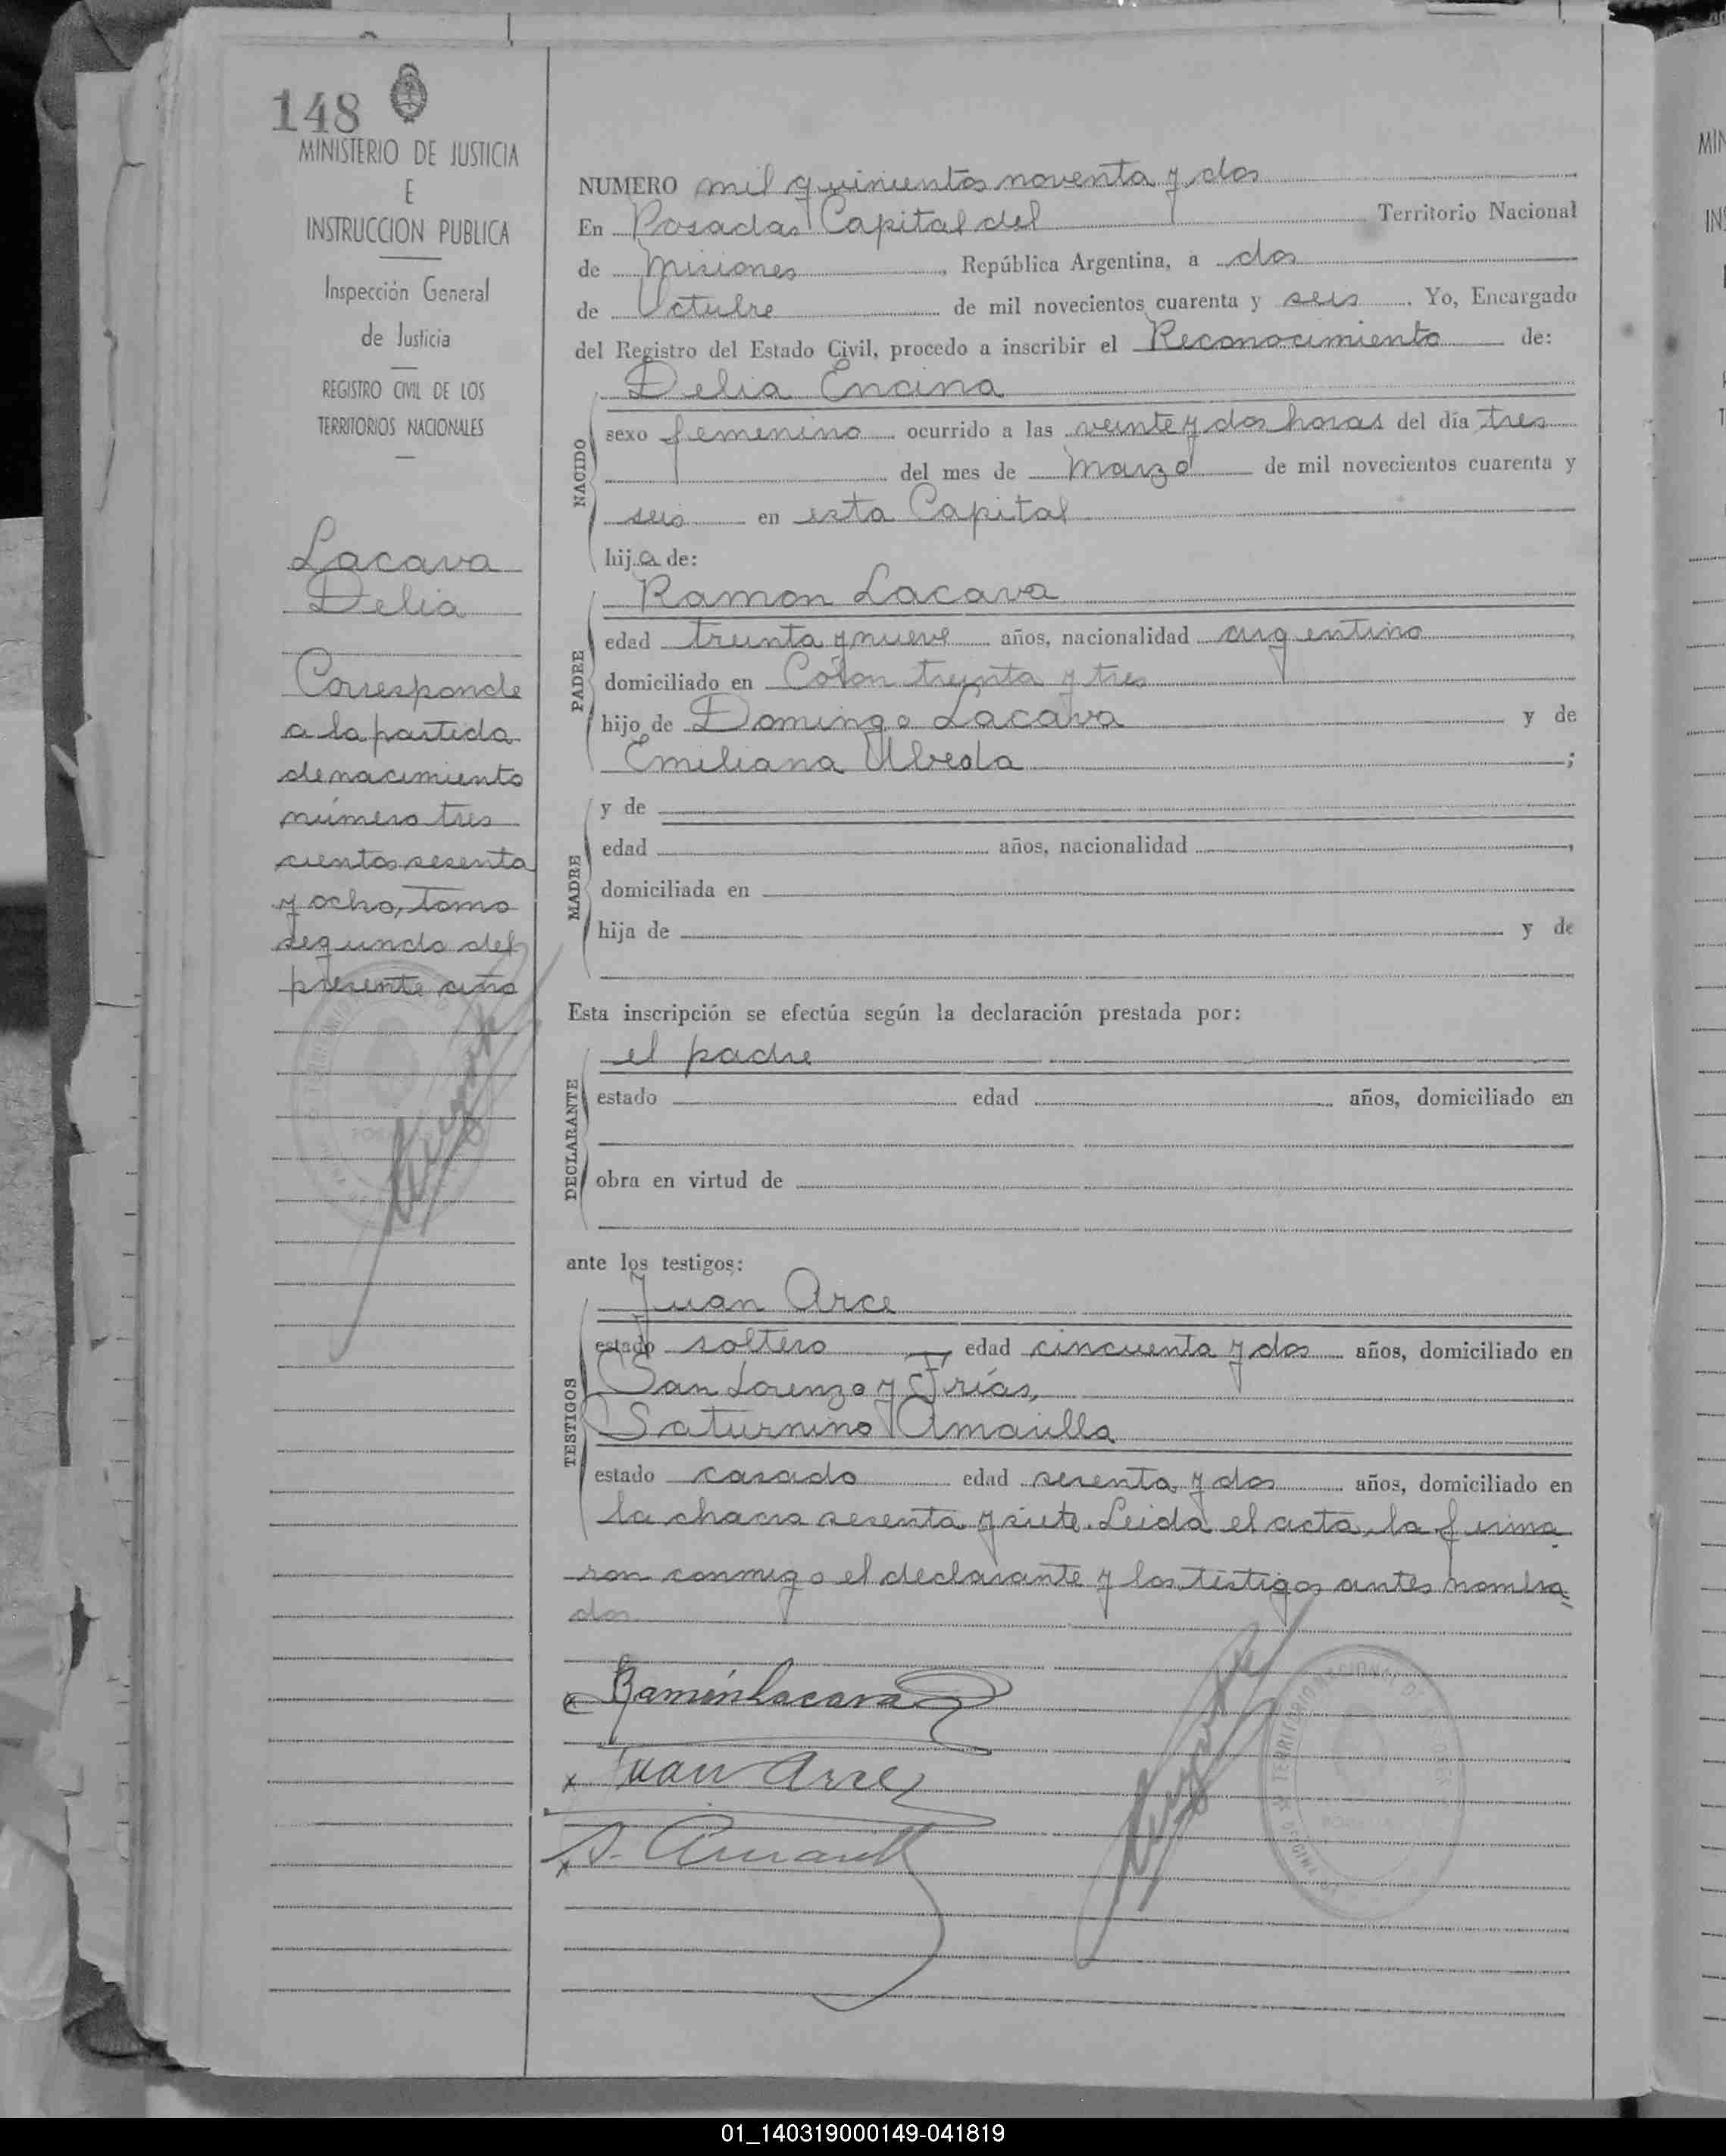 148
MINISTERIO DE JUSTICIA
E
INSTRUCCION PUBLICA
Inspección General
de Justicia
REGISTRO CIVIL DE LOS
TERRITORIOS NACIONALES
Lacava
Delia
Corresponde
a la partida
de nacimiento
número tres
cientos sesenta
y ocho, tomo
segundo del
presente año
NUMERO mil quinientos noventa y dos
En Posadas Capital del Territorio Nacional
de Misiones, República Argentina, a dos
de Octubre de mil novecientos cuarenta y seis. Yo, Encargado
del Registro del Estado Civil, procedo a inscribir el Reconocimiento de:
Delia Encina
NACIDO
sexo femenino ocurrido a las veinte y dos horas del día tres
del mes de Marzo de mil novecientos cuarenta y
seis en esta Capital
hija de:
Ramon Lacava
PADRE
edad treinta y nueve años, nacionalidad argentino,
domiciliado en Colon treinta y tres
hijo de Domingo Lacava y de
Emiliana Ubeda;
MADRE
y de
edad años, nacionalidad,
domiciliada en
hija de y de
Esta inscripción se efectúa según la declaración prestada por:
el padre
DECLARANTE
estado edad años, domiciliado en
obra en virtud de
ante los testigos:
Juan Arce
TESTIGOS
estado soltero edad cincuenta y dos años, domiciliado en
San Lorenzo y Frías,
Saturnino Amarilla
estado casado edad sesenta y dos años, domiciliado en
la chacra sesenta y siete. Leida el acta, la firma
ron conmigo el declarante y los testigos antes nombra
dos
Ramón Lacava
x Juan Arce
x S. Amarill
TERRITORIO NACIONAL DE
01_140319000149-041819